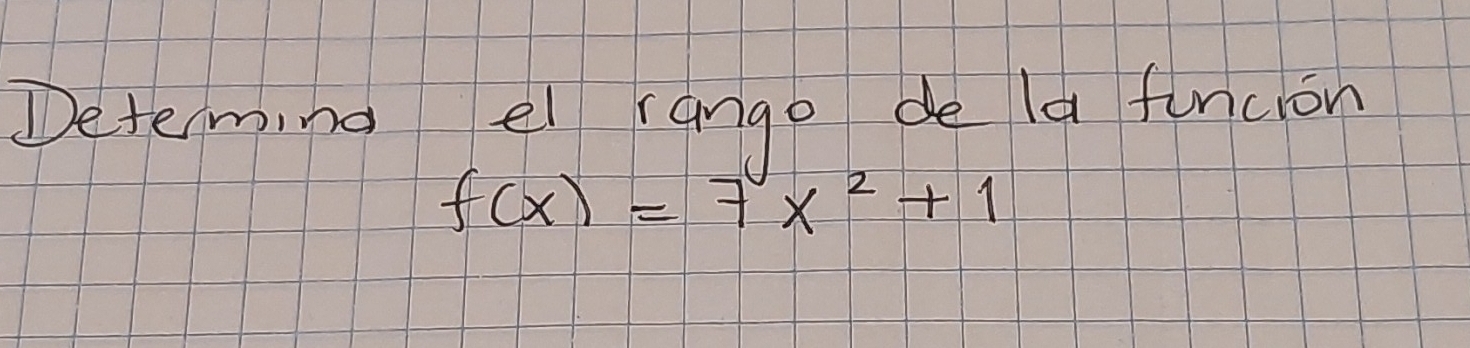 Determina el rango de la función
f(x) = 7x² + 1